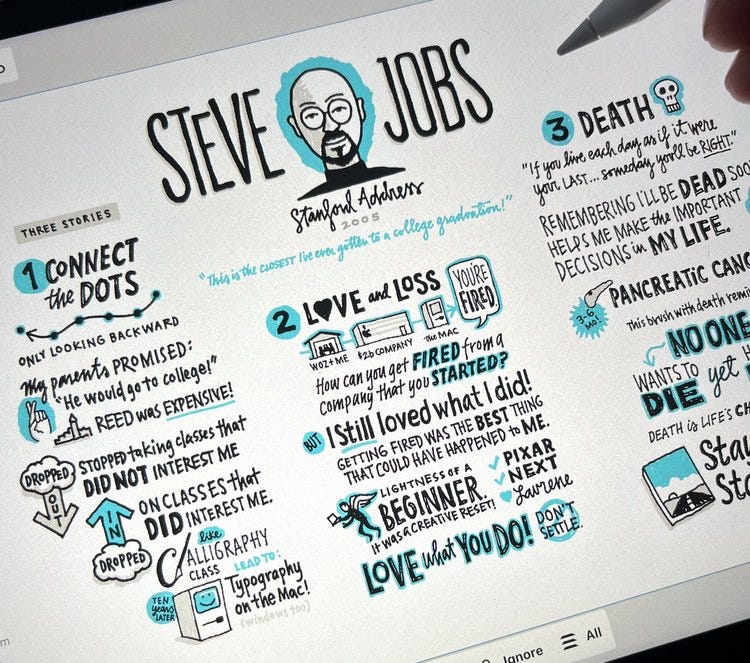 STEVE JOBS
Stanford Address
2005
"This is the CLOSEST I've ever gotten to a college graduation!"
THREE STORIES
1 CONNECT
the DOTS
ONLY LOOKING BACKWARD
My parents PROMISED:
"He would go to college!"
REED was EXPENSIVE!
DROPPED
OUT
STOPPED taking classes that
DID NOT INTEREST ME
IN
DROPPED
ON CLASSES that
DID INTEREST ME.
like
CALLIGRAPHY
CLASS
LEAD TO:
TEN
YEARS
LATER
Typography
on the Mac!
(windows too)
2 LOVE and LOSS
YOU'RE
FIRED
WOZ+ME
$2b COMPANY
the MAC
How can you get FIRED from a
company that you STARTED?
BUT I Still loved what I did!
GETTING FIRED WAS THE BEST THING
THAT COULD HAVE HAPPENED to ME.
LIGHTNESS OF A
BEGINNER.
IT WAS A CREATIVE RESET!
PIXAR
NEXT
Laurene
LOVE what YOU DO!
DON'T
SETTLE.
3 DEATH
"If you live each day as if it were
your LAST... someday you'll be RIGHT."
REMEMBERING I'LL BE DEAD SOO
HELPS ME MAKE the IMPORTANT
DECISIONS in MY LIFE.
3-6
MO!
PANCREATIC CANC
This brush with death remi
NO ONE
WANTS TO
DIE yet
DEATH is LIFE'S CH
Stay
Sta
Ignore
All